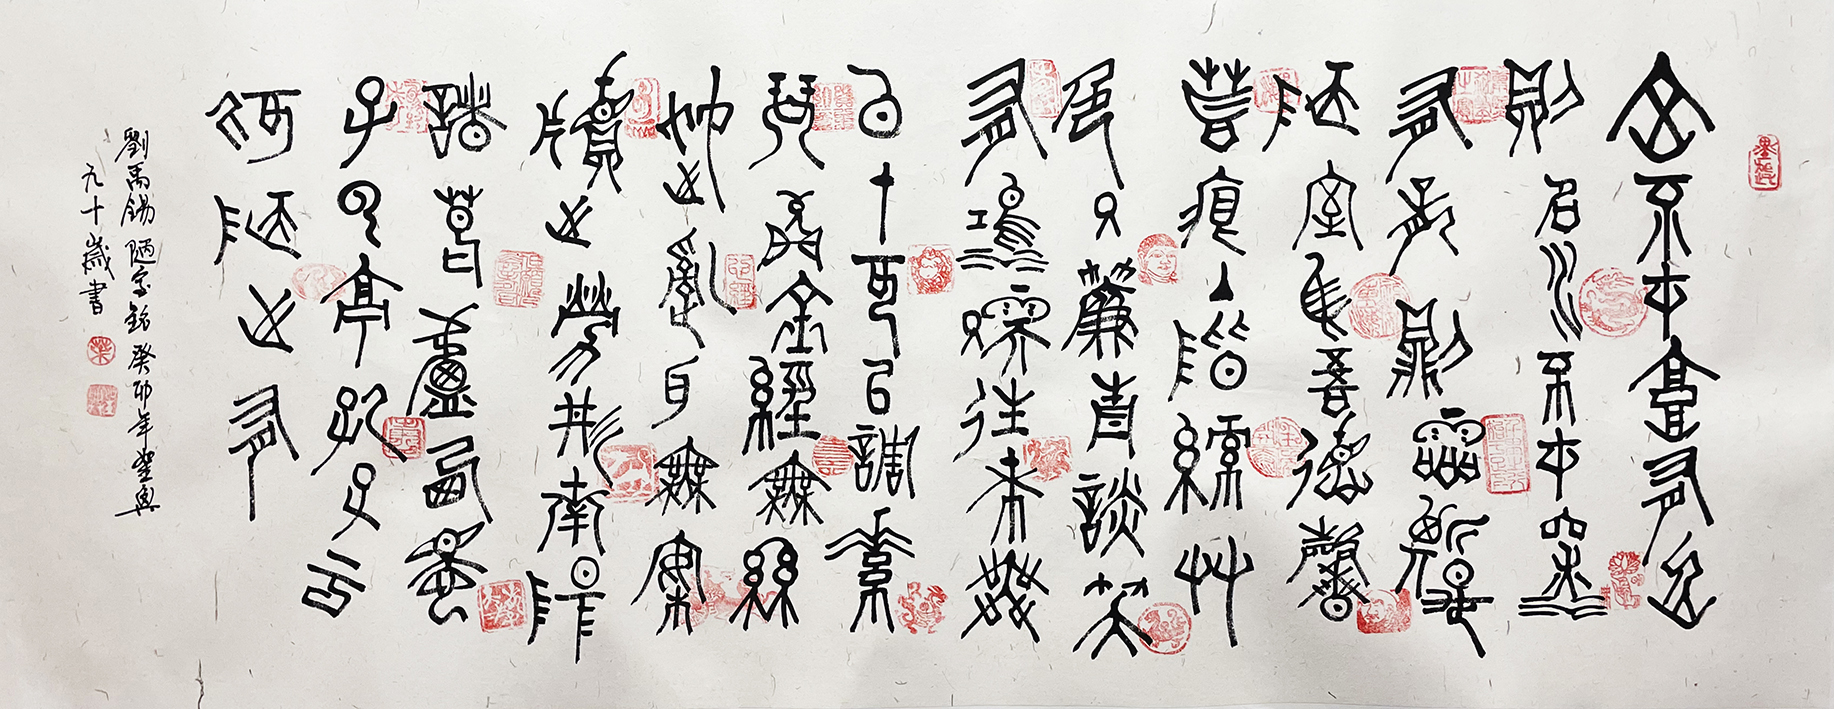 山不在高有仙
則名水不在深
有龍則靈斯是
陋室惟吾德馨
苔痕上階綠艸
色入簾青談笑
有鴻儒往來無
白丁可以調素
琴閱金經無絲
竹之亂耳無案
牘之勞形南陽
諸葛廬西蜀
子云亭孔子云
何陋之有
劉禹錫陋室銘癸卯年
九十歲書